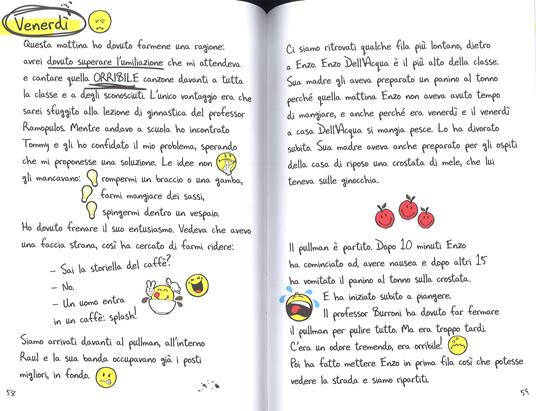 Venerdì
Questa mattina ho dovuto farmene una ragione:
avrei dovuto superare l'umiliazione che mi attendeva
e cantare quella ORRIBILE canzone davanti a tutta
la classe e a degli sconosciuti. L'unico vantaggio era che
sarei sfuggito alla lezione di ginnastica del professor
Ramopulos. Mentre andavo a scuola ho incontrato
Tommy e gli ho confidato il mio problema, sperando
che mi proponesse una soluzione. Le idee non
gli mancavano: rompermi un braccio o una gamba,
farmi mangiare dei sassi,
spingermi dentro un vespaio.
Ho dovuto frenare il suo entusiasmo. Vedeva che avevo
una faccia strana, così ha cercato di farmi ridere:
– Sai la storiella del caffè?
– No.
– Un uomo entra
in un caffè: splash!
Siamo arrivati davanti al pullman, all'interno
Raul e la sua banda occupavano già i posti
migliori, in fondo.
58
Ci siamo ritrovati qualche fila più lontano, dietro
a Enzo. Enzo Dell'Acqua è il più alto della classe.
Sua madre gli aveva preparato un panino al tonno
perché quella mattina Enzo non aveva avuto tempo
di mangiare, e anche perché era venerdì e il venerdì
a casa Dell'Acqua si mangia pesce. Lo ha divorato
subito. Sua madre aveva anche preparato per gli ospiti
della casa di riposo una crostata di mele, che lui
teneva sulle ginocchia.
Il pullman è partito. Dopo 10 minuti Enzo
ha cominciato ad avere nausea e dopo altri 15
ha vomitato il panino al tonno sulla crostata.
E ha iniziato subito a piangere.
Il professor Burroni ha dovuto far fermare
il pullman per pulire tutto. Ma era troppo tardi.
C'era un odore tremendo, era orribile!
Poi ha fatto mettere Enzo in prima fila così che potesse
vedere la strada e siamo ripartiti.
59